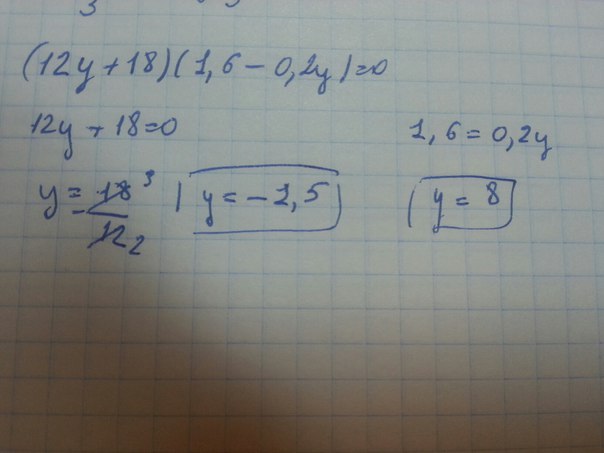 3
(12y+18)(1,6-0,2y)=0
12y+18=0
1,6=0,2y
y=-18/12 3/2
y=-1,5
y=8